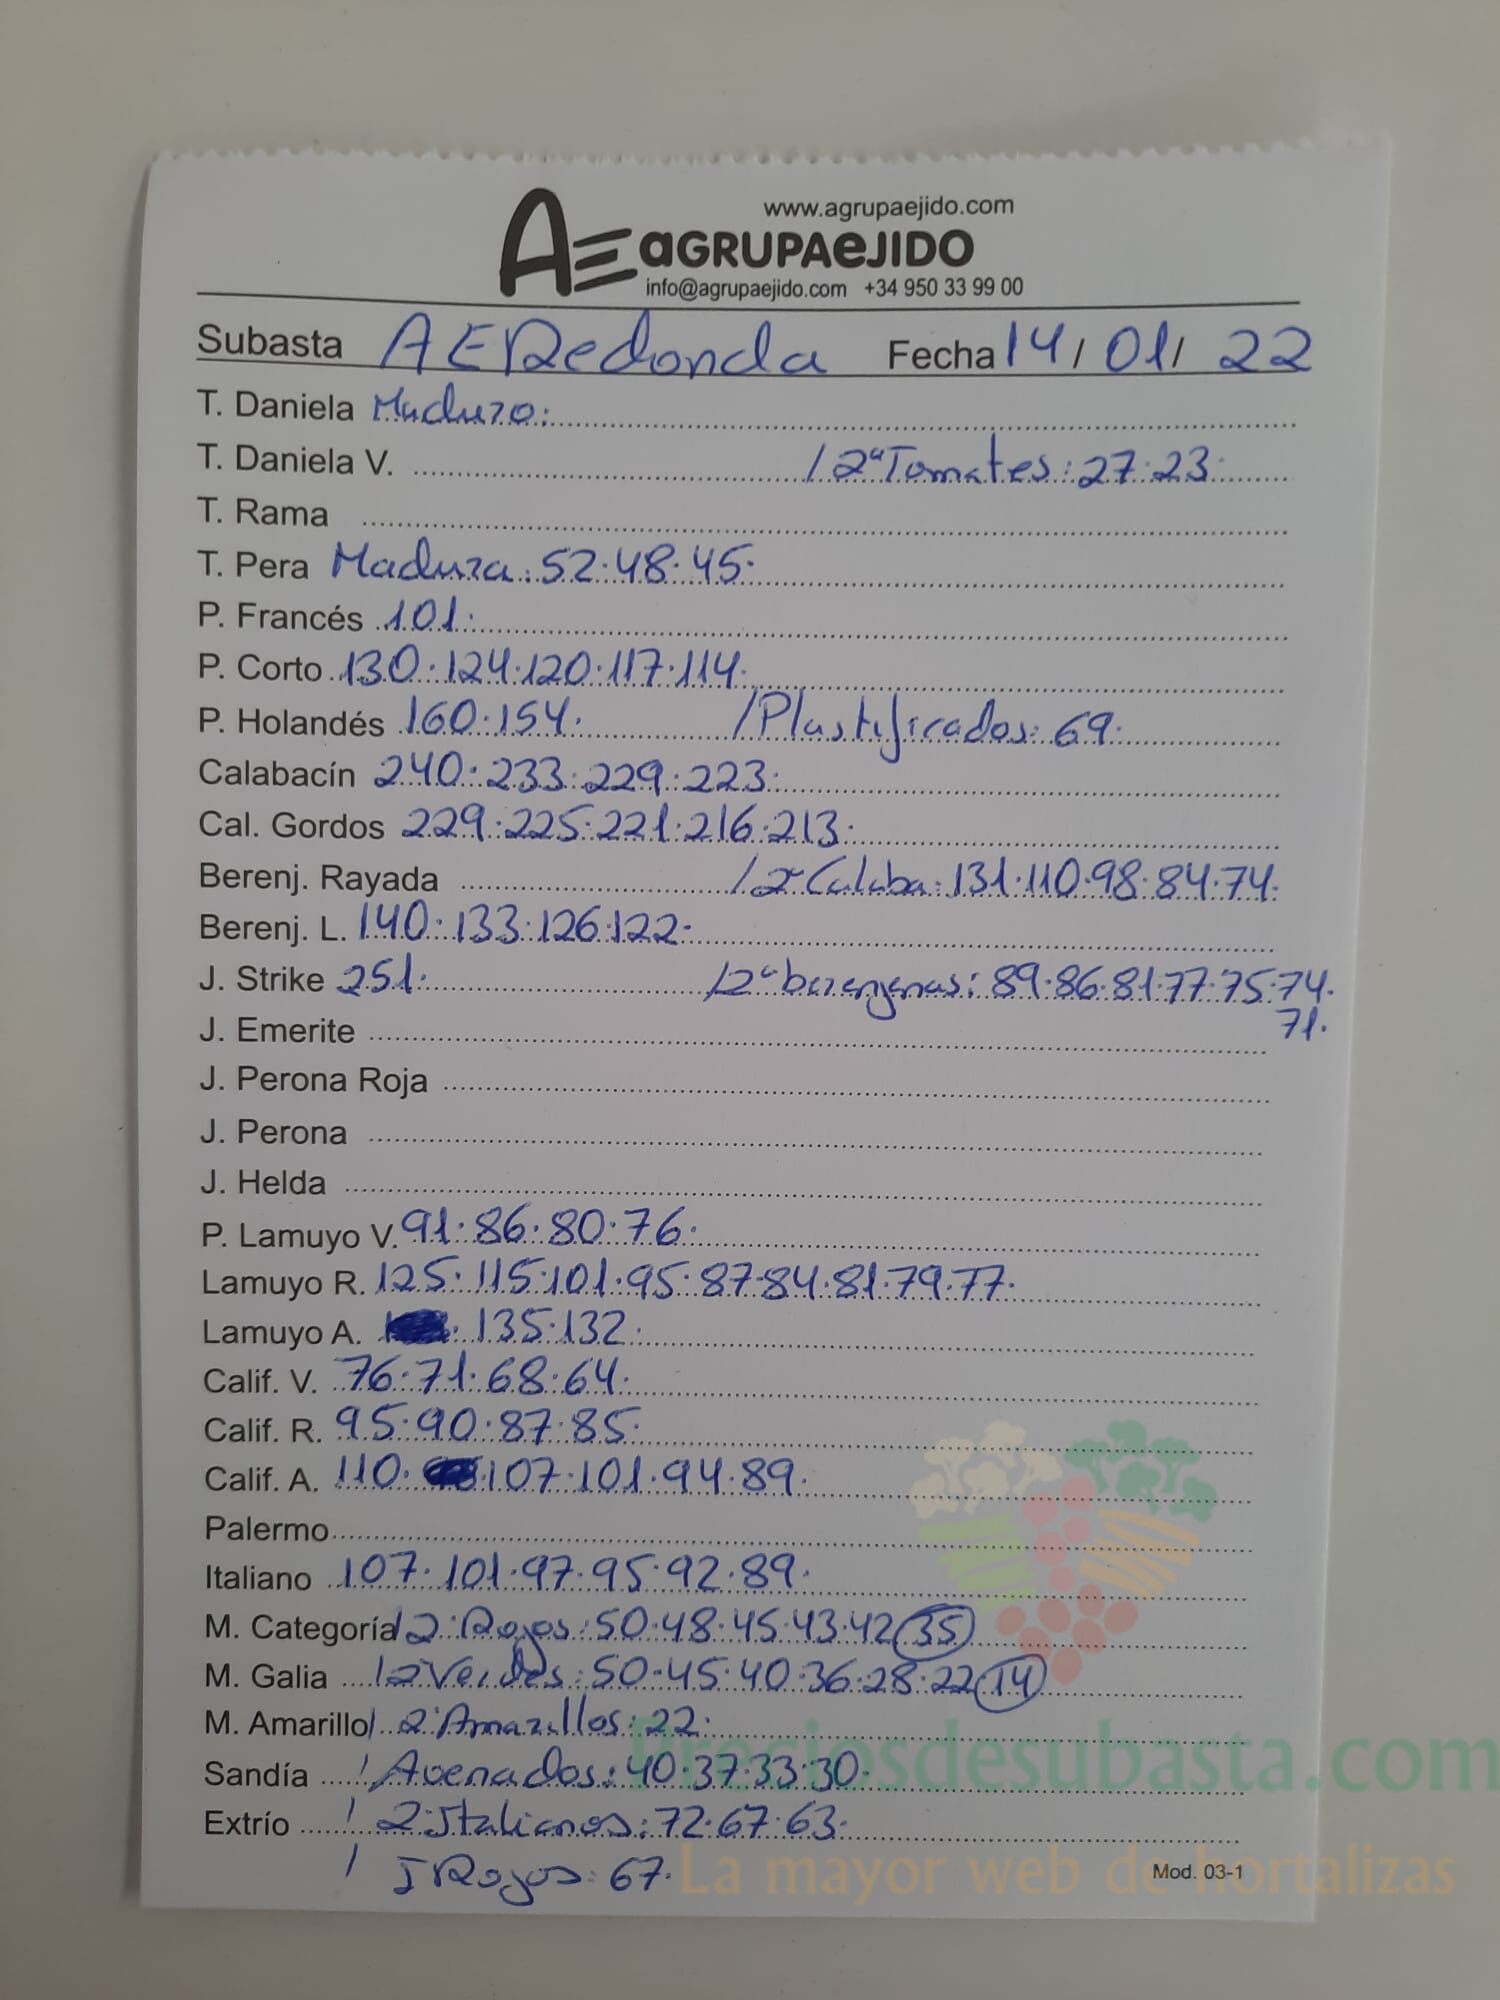 www.agrupaejido.com
AE aGRUPAeJIDO
info@agrupaejido.com +34 950 33 99 00
Subasta AERedonda Fecha 14/01/22
T. Daniela Maduro:
T. Daniela V. /2ªTomates: 27·23·
T. Rama
T. Pera Madura: 52·48·45·
P. Francés 101·
P. Corto 130·124·120·117·114·
P. Holandés 160·154· /Plastificados: 69·
Calabacín 240·233·229·223·
Cal. Gordos 229·225·221·216·213·
Berenj. Rayada /2ªCalaba: 131·110·98·84·74·
Berenj. L. 140·133·126·122·
J. Strike 251· /2ªberenjenas: 89·86·81·77·75·74·
71·
J. Emerite
J. Perona Roja
J. Perona
J. Helda
P. Lamuyo V. 91·86·80·76·
Lamuyo R. 125·115·101·95·87·84·81·79·77·
Lamuyo A. 135·132·
Calif. V. 76·71·68·64·
Calif. R. 95·90·87·85·
Calif. A. 110·107·101·94·89·
Palermo
Italiano 107·101·97·95·92·89·
M. Categoría /2ªRojos: 50·48·45·43·42 35
M. Galia /2Verdes: 50·45·40·36·28·22 14
M. Amarillo /2ªAmarillos: 22·
Sandía /Avenados: 40·37·33·30·
Extrío / 2ªItalianos: 72·67·63·
/ IRojos: 67·
Mod. 03-1
Preciosdesubasta.com
La mayor web de hortalizas